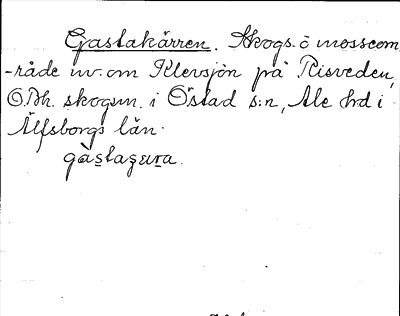 Gastakärren. Skogs. o mossom
-råde nv. om Klevsjön på Risveden,
O.Bh. skogsm. i Östad s:n, Ale hd i
Älfsborgs län.